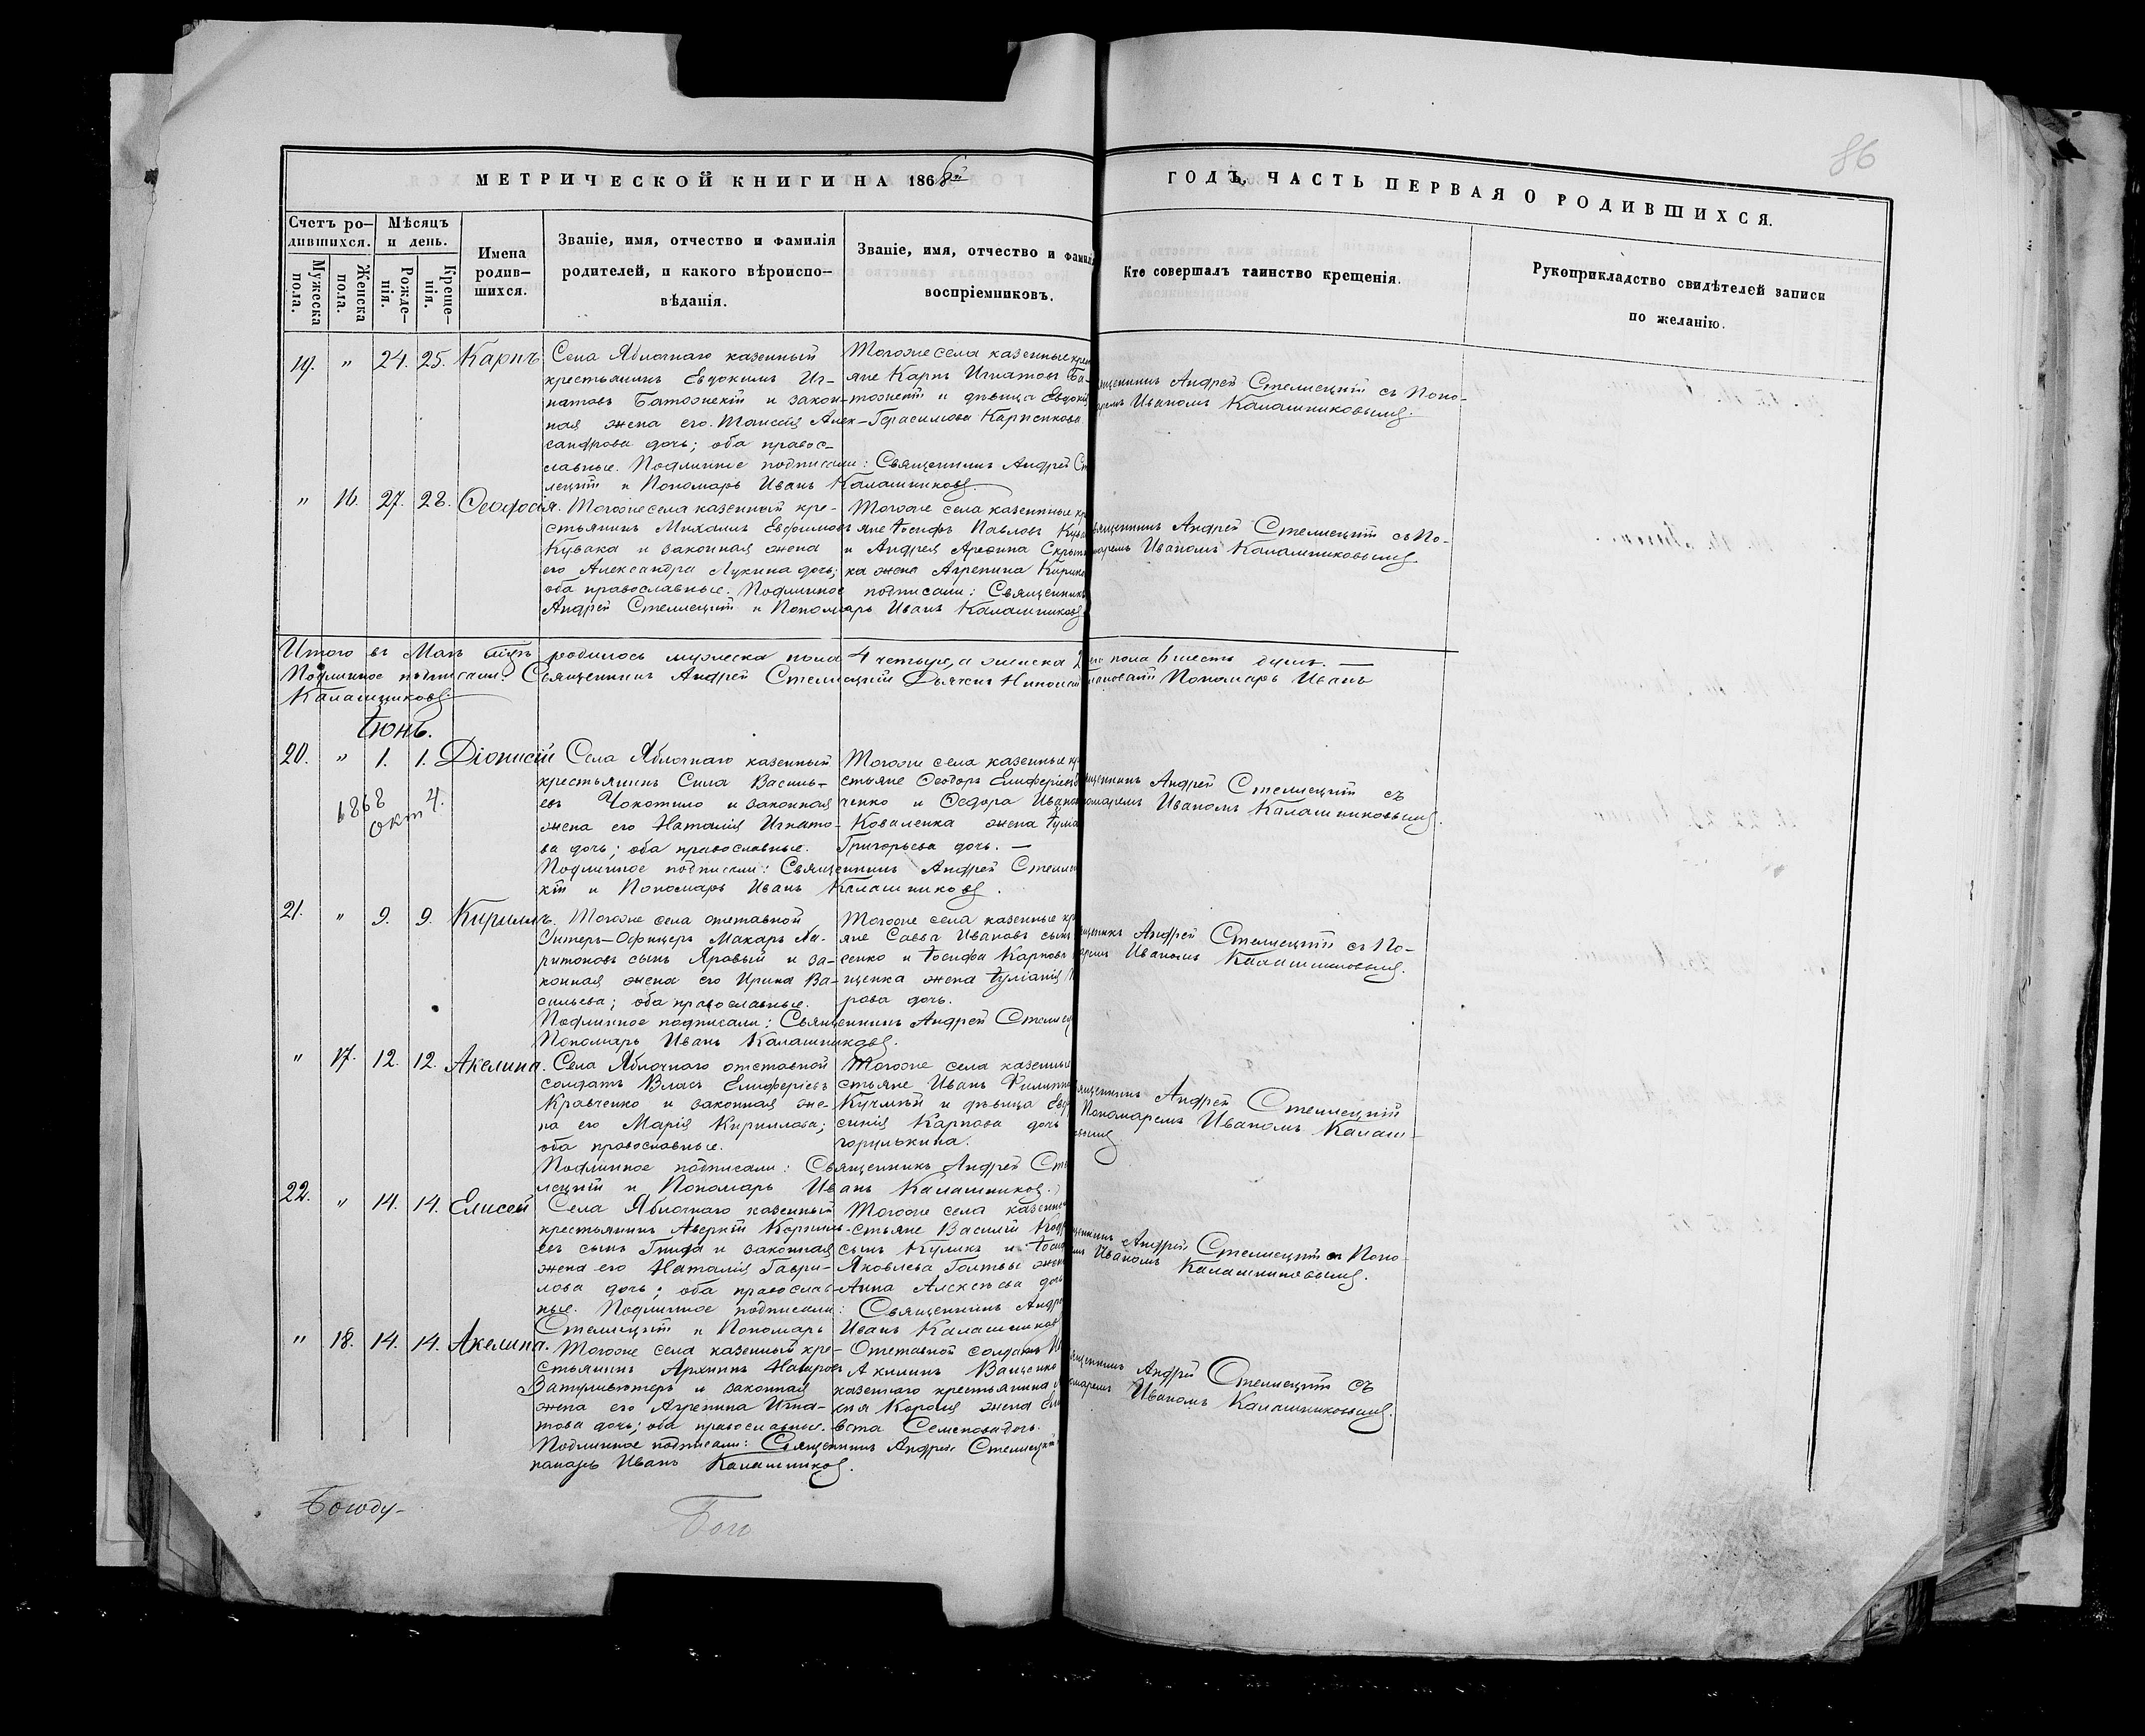 86
МЕТРИЧЕСКОЙ КНИГИ НА 1868й ГОДЪ, ЧАСТЬ ПЕРВАЯ О РОДИВШИХСЯ.
Счетъ ро-
дившихся.
Мужеска пола.
Женска пола.
Мѣсяцъ
и день.
Рожде-
нія.
Креще-
нія.
Имена
родив-
шихся.
Званіе, имя, отчество и фамилія
родителей, и какого вѣроиспо-
вѣданія.
Званіе, имя, отчество и фамилі
воспріемниковъ.
Кто совершалъ таинство крещенія.
Рукоприкладство свидѣтелей записи
по желанію.
19. " 24. 25. Карпъ
Села Яблочнаго казенный
крестьянинъ Евдокимъ Иг-
натовъ и закон-
ная жена его Таисія Алек-
сандрова дочь; оба правос-
славные. Подлинное подписали: Священникъ Андрей Ст
лецкій и Пономарь Иванъ Калашниковъ
Тогоже села казенные крест
яне Карпъ Игнатовъ Ба-
и дѣвица Евдокі
Герасимова
ященникъ Андрей Стеллецкій съ Поно-
аремъ Иваномъ Калашниковымъ.
" 16. 27. 28. Ѳеодосія.
Тогоже села казенный кре-
стьянинъ Михаилъ Евфимовъ
Кувака и законная жена
его Александра Лукина дочь;
оба православные. Подлинное подписали: Священникъ
Андрей Стеллецкій и Пономарь Иванъ Калашниковъ
Тогоже села казенные кр
яне Іосифъ Павловъ Кува
и Андрея
ка жена Агрепина
вященникъ Андрей Стеллецкій съ По-
маремъ Иваномъ Калашниковымъ
Итого въ Маѣ мѣсяцѣ родилось мужеска пола 4 четыре, а женска пола 6 шесть душъ. —
Подлинное подписали: Священникъ Андрей Стеллецкій Дьячекъ Николай Пономарь Иванъ
Калашниковъ
Іюнь.
20. " 1. 1. Діонисій
1868
окт 4.
Села Яблочнаго казенный
крестьянинъ Сила Василь-
евъ Чокотило и законная
жена его Наталія Игнато-
ва дочь; оба православные.
Подлинное подписали: Священникъ Андрей Стеллец
кій и Пономарь Иванъ Калашниковъ.
Тогоже села казенные кр
стьяне Ѳеодоръ
ченко и Ѳедора Ивано
Коваленка жена
Григорьева дочь. —
ященникъ Андрей Стеллецкій съ
номаремъ Иваномъ Калашниковымъ.
21. " 9. 9. Кириллъ.
Тогоже села отставной
Унтеръ-Офицеръ Макаръ Ха-
ритоновъ сынъ Яровый и за-
конная жена его Ирина Ва-
сильева; оба православные.
Подлинное подписали: Священникъ Андрей Стеллец
Пономарь Иванъ Калашниковъ.
Тогоже села казенные кр
яне Савва Ивановъ сынъ
сенко и Іосифа Карпова
щенка жена Іуліанія
рова дочь.
щенникъ Андрей Стеллецкій съ По-
аремъ Иваномъ Калашниковымъ.
" 17. 12. 12. Акелина.
Села Яблочнаго отставной
солдатъ Власъ Елиферіевъ
Кравченко и законная же-
на его Марія Кириллова;
оба православные.
Подлинное подписали: Священникъ Андрей Сте
лецкій и Пономарь Иванъ Калашниковъ.
Тогоже села казенные
стьяне Иванъ Филиппо
и дѣвица Евф
синія Карпова дочь
ященникъ Андрей Стеллецкій
Пономаремъ Иваномъ Калаш-
овымъ
22. " 14. 14. Елисей
Села Яблочнаго казенный
крестьянинъ Аверкій Корнилъ-
евъ сынъ Гнида и законная
жена его Наталія Гаври-
лова дочь; оба православ-
ные. Подлинное подписали: Священникъ Андре
Стеллецкій и Пономарь Иванъ Калашников
Тогоже села казенные
стьяне Василій
сынъ Куликъ и Іосиф
Яковлева Голтвы жена
Анна Алексѣева дочь
щенникъ Андрей Стеллецкій съ Поно-
мъ Иваномъ Калашниковымъ.
" 18. 14. 14. Акелина.
Тогоже села казенный кре-
стьянинъ Архипъ
и законная
жена его Агрепина Игна-
това дочь; оба православные.
Подлинное подписали: Священникъ Андрей Стеллецкій
номарь Иванъ Калашниковъ.
Отставной солдатъ
Акилинъ Ващенко
казеннаго крестьянина
Король жена Ели
вета Семенова дочь.
ященникъ Андрей Стеллецкій съ
омаремъ Иваномъ Калашниковымъ.